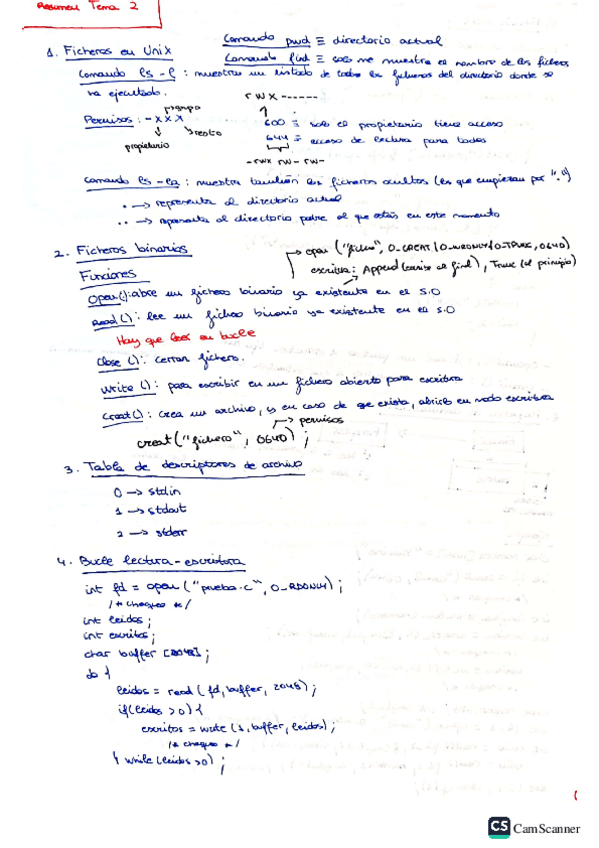 Resumen Tema 2
Comando pwd ≡ directorio actual
1. Ficheros en Unix
Comando find ≡ solo me muestra el nombre de los ficheros
Comando ls -l : muestra un listado de todos los ficheros del directorio donde se
ha ejecutado.
r w x ------
Permisos : - x x x
grupo
resto
propietario
600 ≡ solo el propietario tiene acceso
644 ≡ acceso de lectura para todos
- rwx rw- rw-
Comando ls -la : muestra también los ficheros ocultos (los que empiezan por ".")
. → representa el directorio actual
.. → representa el directorio padre al que estás en este momento
2. Ficheros binarios
→ open ("fichero", O_CREAT|O_WRONLY|O_TRUNC, 0640)
escritura: Append (escribe al final), Trunc (al principio)
Funciones
Open(): abre un fichero binario ya existente en el S.O
Read() : lee un fichero binario ya existente en el S.O
Hay que leer en bucle
Close () : cerrar fichero.
Write () : para escribir en un fichero abierto para escritura
Creat() : crea un archivo, y en caso de que exista, abrirlo en modo escritura
→ permisos
creat ("fichero", 0640) ;
3. Tabla de descriptores de archivo
0 → stdin
1 → stdout
2 → stderr
4. Bucle lectura-escritura
int fd = open ("prueba.c", O_RDONLY) ;
/* chequeo */
int leidos ;
int escritos ;
char buffer [2048] ;
do {
leidos = read ( fd, buffer, 2048) ;
if (leidos > 0) {
escritos = write (1, buffer, leidos) ;
/* chequeo */
} while (leidos > 0) ;
CS CamScanner